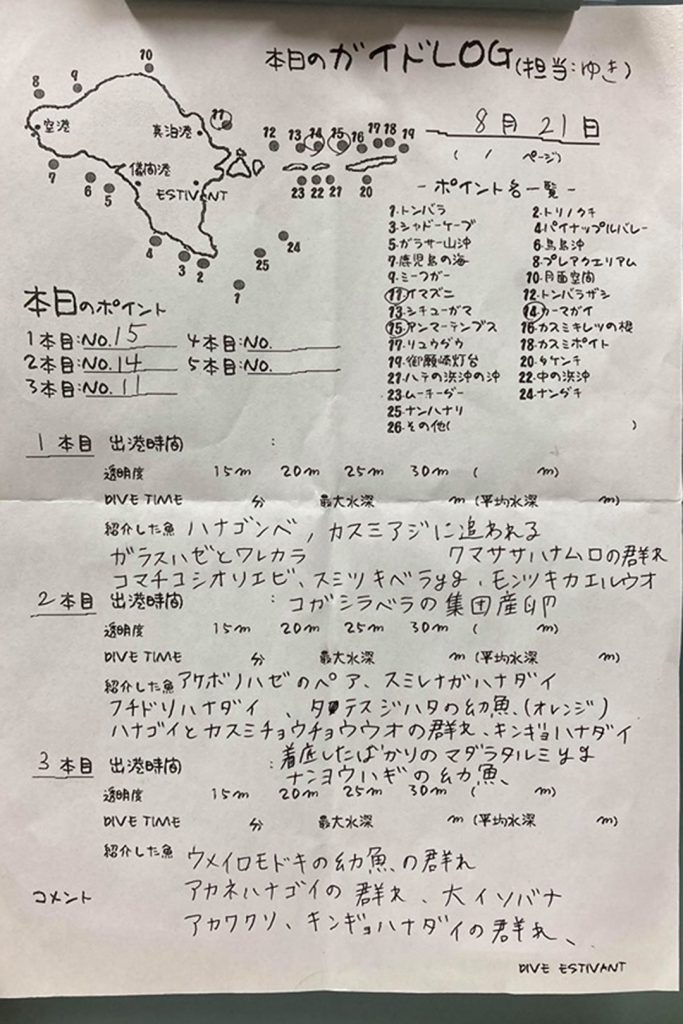 本日のガイドLOG(担当:ゆき)
8月21日
( / ページ)
10
8
9
空港
真泊港
儀間港
ESTIVANT
11
7
6
5
4
3
2
1
12
13
14
15
16
17
18
19
23
22
21
20
24
25
-ポイント名一覧-
1.トンバラ
2.トリノクチ
3.シャドーケーブ
4.パイナップルバレー
5.ガラサー山沖
6.鳥島沖
7.鹿児島の海
8.プレアクエリアム
9.ミーフガー
10.月面空間
11.イマズニ
12.トンバラザシ
13.シチューガマ
14.カーマガイ
15.アンマーテンプス
16.カスミキレツの根
17.リュウダウ
18.カスミポイト
19.御願崎灯台
20.タケンチ
21.ハテの浜沖の沖
22.中の浜沖
23.ムーチーダー
24.ナンダチ
25.ナンハナリ
26.その他( )
本日のポイント
1本目:NO.15
4本目:NO.
2本目:NO.14
5本目:NO.
3本目:NO.11
1本目 出港時間 :
透明度 15m 20m 25m 30m ( m)
DIVE TIME 分 最大水深 m (平均水深 m)
紹介した魚 ハナゴンベ, カスミアジに追われる
ガラスハゼとワレカラ クマササハナムロの群れ
コマチコシオリエビ、スミツキベラyg、モンツキカエルウオ
2本目 出港時間 : コガシラベラの集団産卵
透明度 15m 20m 25m 30m ( m)
DIVE TIME 分 最大水深 m (平均水深 m)
紹介した魚 アケボノハゼのペア、スミレナガハナダイ
フチドリハナダイ 、タテスジハタの幼魚、(オレンジ)
ハナゴイとカスミチョウチョウウオの群れ、キンギョハナダイ
3本目 出港時間 : 着底したばかりのマダラタルミyg
ナンヨウハギの幼魚、
透明度 15m 20m 25m 30m ( m)
DIVE TIME 分 最大水深 m (平均水深 m)
紹介した魚 ウメイロモドキの幼魚、の群れ
コメント アカネハナゴイの群れ、大イソバナ
アカククリ、キンギョハナダイの群れ、
DIVE ESTIVANT